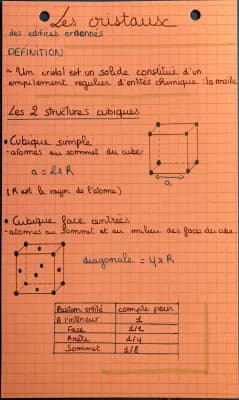 Les cristaux
des édifices ordonnés
DÉFINITION
~ Un cristal est un solide constitué d'un
empilement régulier d'entités chimique : la maille
Les 2 structures cubiques
• Cubique simple
- atomes au sommet du cube
a = 2 x R
(R est le rayon de l'atome)
a
• Cubique face centrées
- atomes au sommet et au milieu des faces du cube
diagonale = 4 x R
Position entité | compte pour
A l'intérieur | 1
Face | 1/2
Arête | 1/4
Sommet | 1/8